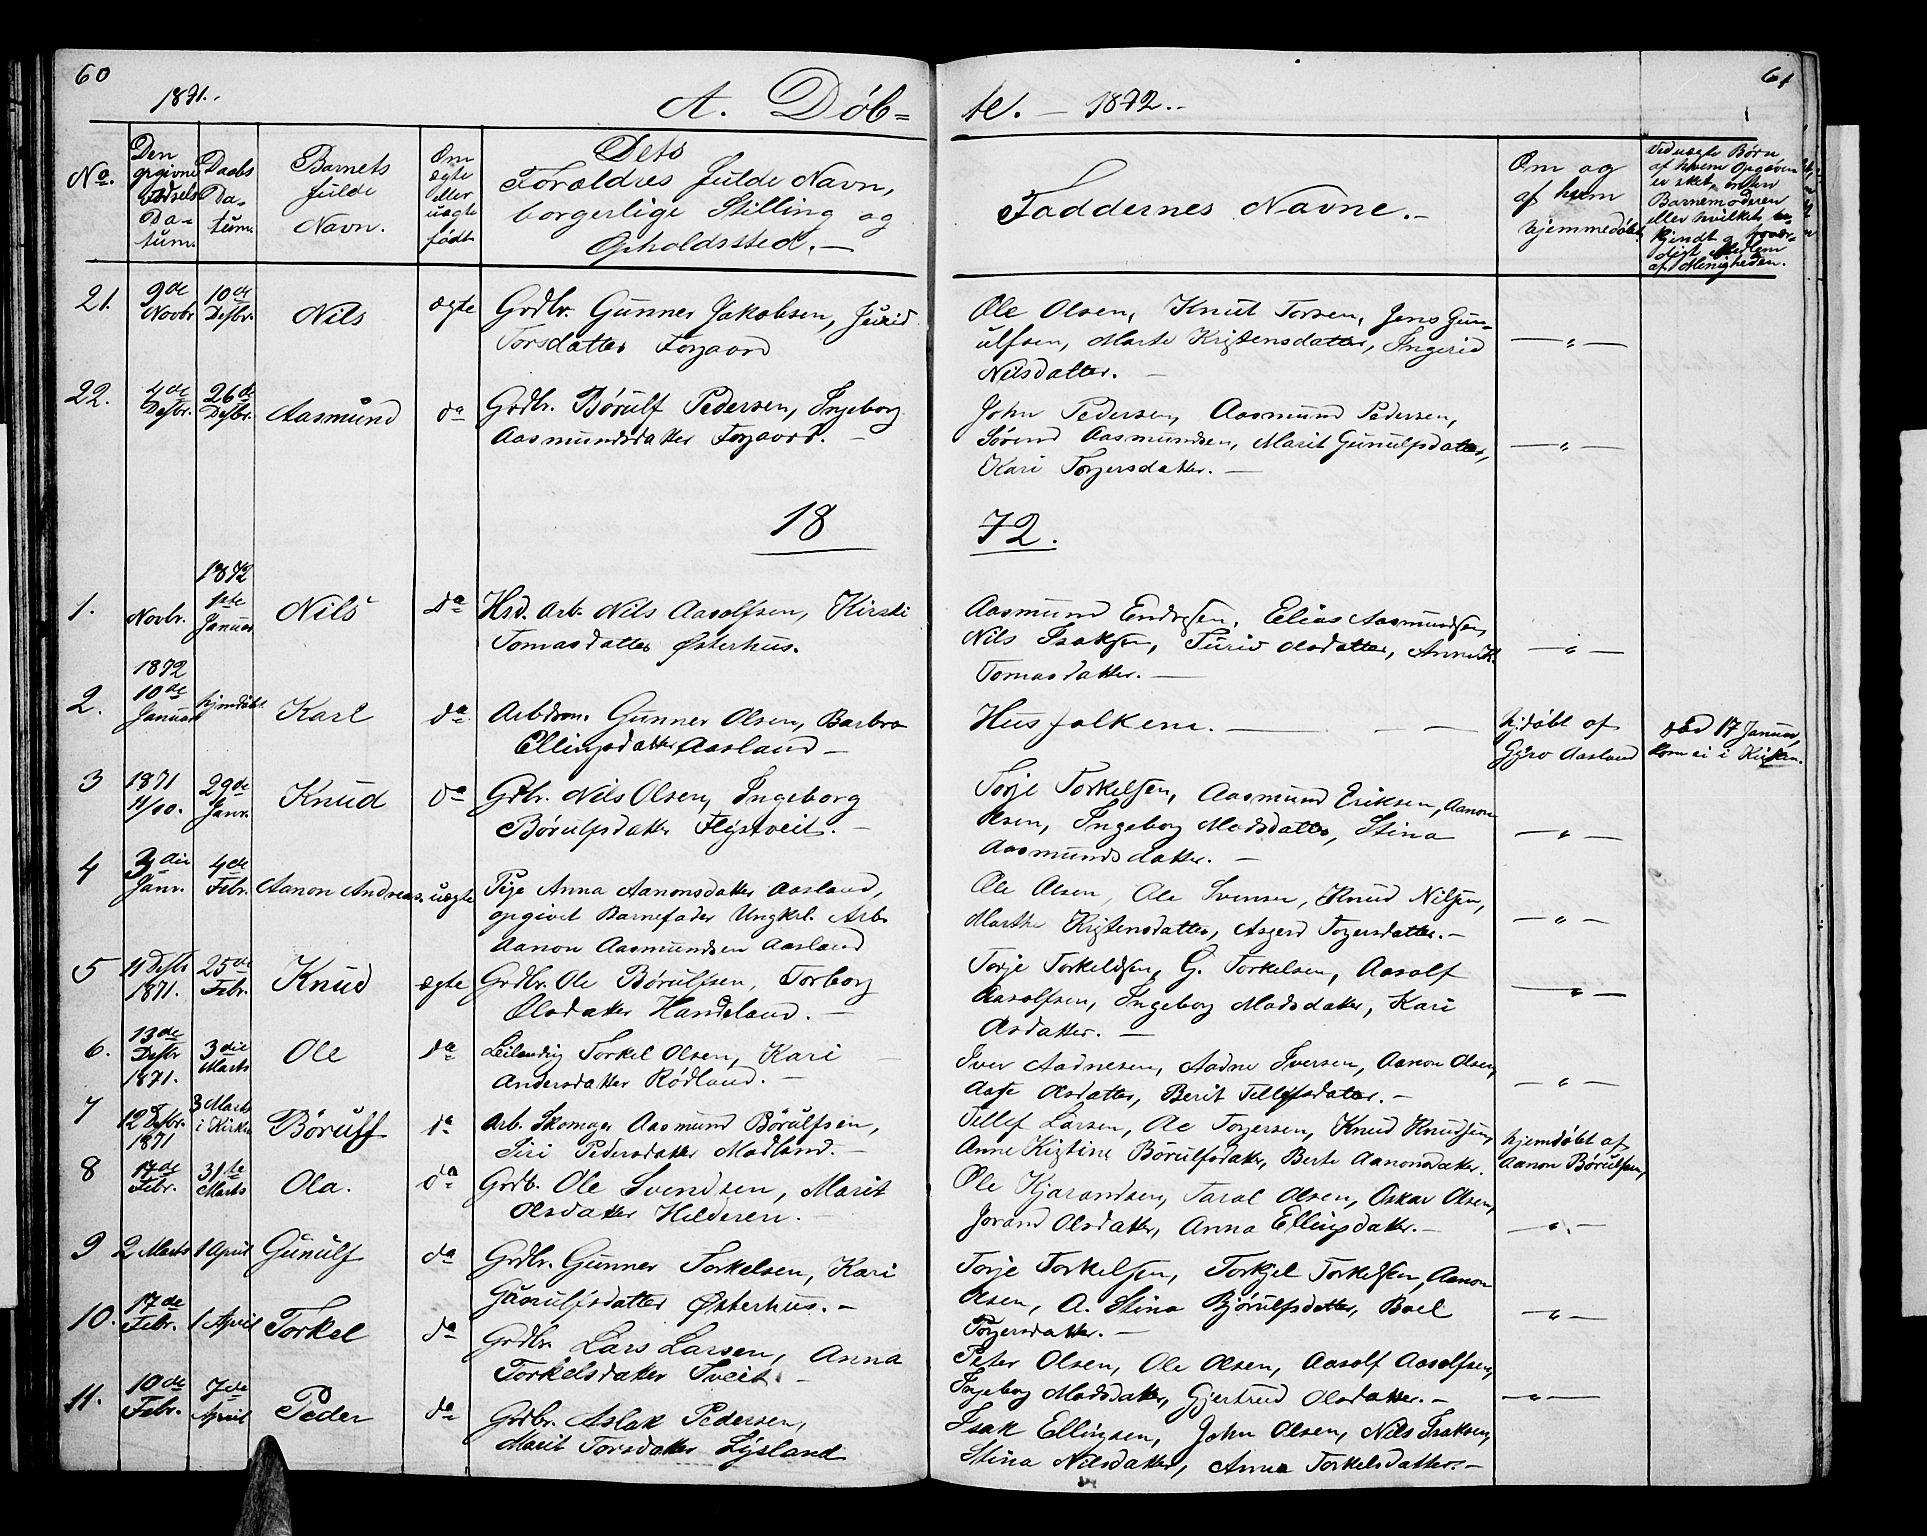 60
61
1871.
A. Døb=
te. — 1872.
No.
Den opgivne Fødsels Da-tum.
Daabs Da-tum.
Barnets fulde Navn.
Om ægte eller uægte født.
Dets Forældres fulde Navn, borgerlige Stilling og Opholdssted. —
Faddernes Navne. —
Om og af hvem hjemmedøbt.
Ved uægte Børn af hvem Opgaven er sket, enten Barnemoderen eller hvilket be-kjendt og trovær-digt Medlem af Menigheden.
21. 9de Novbr. 10de Desbr. Nils ægte Grdbr. Gunner Jakobsen, Jurid
Torsdatter Forgaard
Ole Olsen, Knut Torsen, Jens Gun-
ulfsen, Marte Kristensdatter, Ingerid
Nilsdatter. —
— „ —
22. 4de Desbr. 26de Desbr. Aasmund do Grdbr. Børulf Pedersen, Ingeborg
Aasmundsdatter Forgaard. —
John Pedersen, Aasmund Pedersen,
Sørend Aasmundsen, Marit Gunulfsdatter,
Kari Torgersdatter. —
— „ —
18
72.
1. Novbr. 1872 1ste Januar Nils Do Hsd. Arb. Nils Aasolfsen, Kirsti
Tomasdatter Østerhus.
Aasmund Endresen, Elias Aasmundsen,
Nils Isaksen, Turid Olsdatter, Anne K.
Tomasdatter. —
— „ —
2. 1872 10de Januar hjemdøbt Karl do Arbdsm. Gunner Olsen, Barbro
Ellingsdatter Aasland —
Husfolkene. —
hjdøbt af
Gyro Aasland
død 17 Januar,
kom ei i Kirken.
3 1871 11/10. 29de Janr. Knud do Grbr. Nils Olsen, Ingeborg
Børulfsdatter Flystveit. —
Torje Torkelsen, Aasmund Eriksen, Aanon
Olsen, Ingeborg Madsdatter, Stina
Aasmundsdatter. —
— „ —
4 3die Janr. 4de Febr. Aanon Andreas. uægte Pige Anna Aanonsdatter Aasland,
opgivet Barnefader Ungkrl. Arb.
Aanon Aasmundsen Aasland
Ole Olsen, Ole Svensen, Knud Nilsen,
Marthe Kristensdatter, Asgerd Torgersdatter. —
— „ —
5 11 Desbr 1871. 25de Febr. Knud ægte Grdbr. Ole Børulfsen, Torborg
Olsdatter Handeland. —
Torje Torkeldsen, G. Torkelsen, Aasolf
Aasolfsen, Ingeborg Madsdatter, Kari
Olsdatter. —
— „ —
6. 13de Desbr 1871. 3die Marts Ole do Leilændig Torkel Olsen, Kari
Andersdatter Rødland. —
Iver Aadnesen, Aadne Iversen, Aanon Olsen,
Aase Olsdatter, Berit Tellefsdatter. —
— „ —
7 12 Desbr. 1871 3 Marts i Kirken Børulf do Arb. Skomager Aasmund Børulfsen,
Siri Pedersdatter Madland. —
Tellef Larsen, Ole Torgersen, Knud Knudsen,
Anne Kristine Børulfsdatter, Berte Aanonsdatter.
hjemdøbt af
Aanon Børulfsen,
8 17de Febr. 31te Marts Ola. do Grdb. Ole Svendsen, Marit
Olsdatter Hilderen. —
Ole Kjarandsen, Taral Olsen, Oskar Olsen,
Jorand Olsdatter, Anna Ellingsdatter. —
— „ —
9 2 Marts 1 April Gunulf do Grdbr. Gunner Torkelsen, Kari
Gunulfsdatter Østerhus. —
Torje Torkelsen, Torkjel Torkelsen, Aanon
Olsen, A. Stina Bjørulfsdatter, Boel
Torgersdatter. —
— „ —
10. 17de Febr. 1 April Torkel do Grdbr. Lars Larsen, Anna
Torkelsdatter Tveit. —
Peter Olsen, Ole Olsen, Aasolf Aasolfsen,
Ingeborg Madsdatter, Gjertrud Olsdatter. —
— „ —
11. 10de Febr. 7de April Peder do Grdbr. Aslak Pedersen,
Marit Torsdatter Lysland
Isak Ellingsen, John Olsen, Nils Isaksen,
Stina Nilsdatter, Anna Torkelsdatter. —